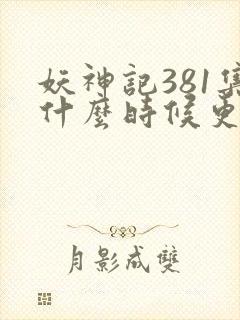 妖神記381集
什麼時候更
月影成雙